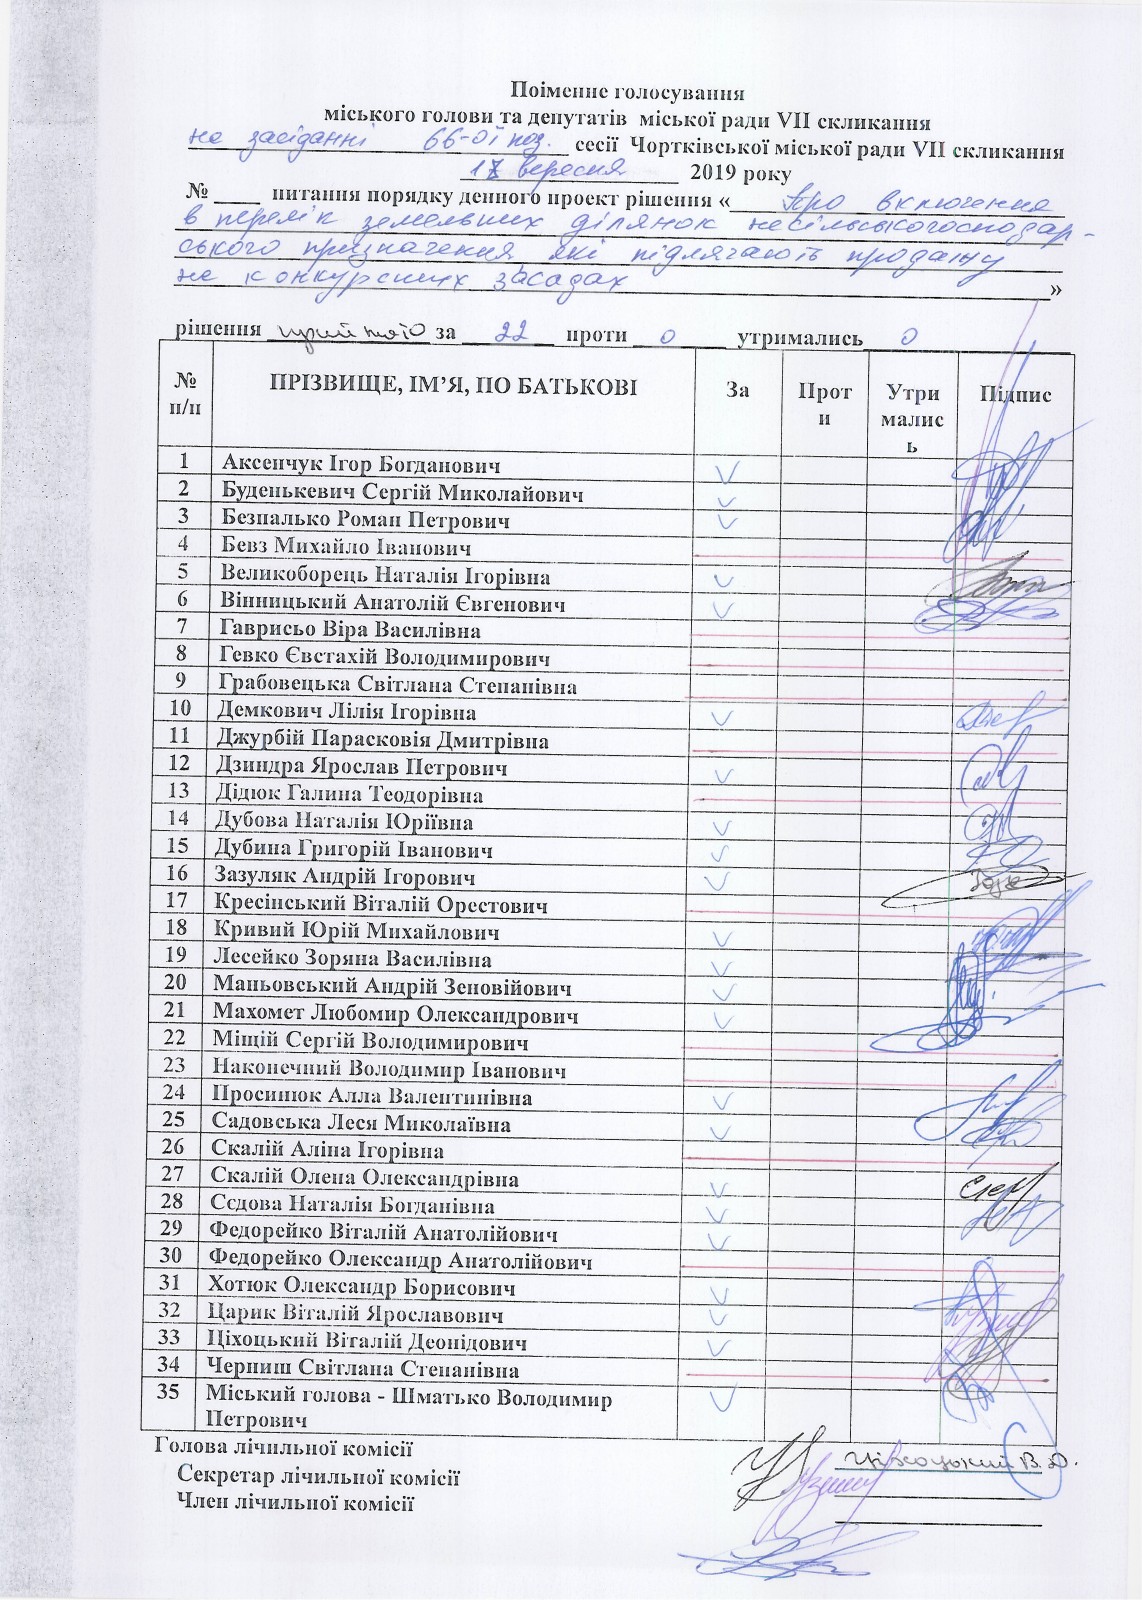 Поіменне голосування
міського голови та депутатів міської ради VII скликання
на засіданні 66-ої поз. сесії Чортківської міської ради VII скликання
17 вересня 2019 року
№ ____ питання порядку денного проект рішення « Про включення
в перелік земельних ділянок несільськогосподар-
ського призначення, які підлягають продажу
на конкурсних засадах »
рішення прийнято за 22 проти 0 утримались 0
№ п/п ПРІЗВИЩЕ, ІМ’Я, ПО БАТЬКОВІ За Проти Утримались Підпис
1 Аксенчук Ігор Богданович
2 Буденькевич Сергій Миколайович
3 Безпалько Роман Петрович
4 Бевз Михайло Іванович
5 Великоборець Наталія Ігорівна
6 Вінницький Анатолій Євгенович
7 Гаврисьо Віра Василівна
8 Гевко Євстахій Володимирович
9 Грабовецька Світлана Степанівна
10 Демкович Лілія Ігорівна
11 Джурбій Парасковія Дмитрівна
12 Дзиндра Ярослав Петрович
13 Дідюк Галина Теодорівна
14 Дубова Наталія Юріївна
15 Дубина Григорій Іванович
16 Зазуляк Андрій Ігорович
17 Кресінський Віталій Орестович
18 Кривий Юрій Михайлович
19 Лесейко Зоряна Василівна
20 Маньовський Андрій Зеновійович
21 Махомет Любомир Олександрович
22 Міщій Сергій Володимирович
23 Наконечний Володимир Іванович
24 Просинюк Алла Валентинівна
25 Садовська Леся Миколаївна
26 Скалій Аліна Ігорівна
27 Скалій Олена Олександрівна
28 Сєдова Наталія Богданівна
29 Федорейко Віталій Анатолійович
30 Федорейко Олександр Анатолійович
31 Хотюк Олександр Борисович
32 Царик Віталій Ярославович
33 Ціхоцький Віталій Деонідович
34 Черниш Світлана Степанівна
35 Міський голова - Шматько Володимир
Петрович
Голова лічильної комісії Ціхоцький В.Д.
Секретар лічильної комісії
Член лічильної комісії